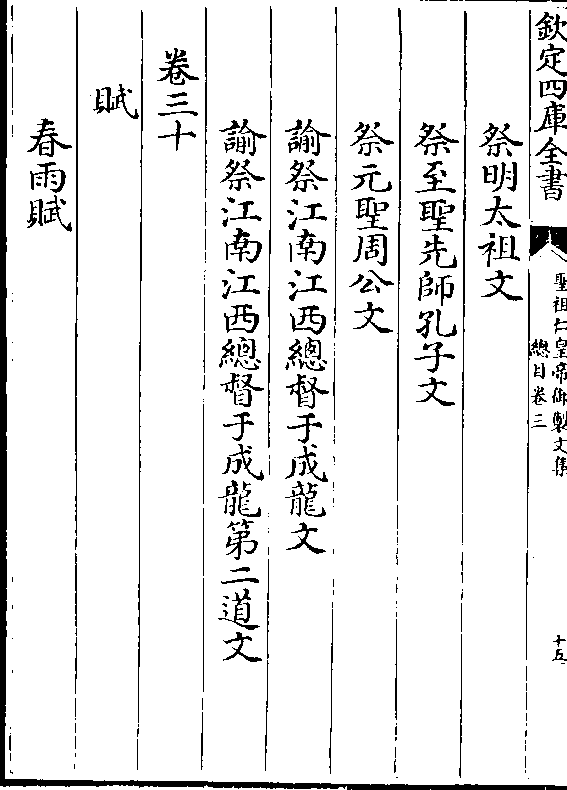 欽定四庫全書
聖祖仁皇帝御製文集
總目卷三
十五
祭明太祖文
祭至聖先師孔子文
祭元聖周公文
諭祭江南江西總督于成龍文
諭祭江南江西總督于成龍第二道文
卷三十
賦
春雨賦